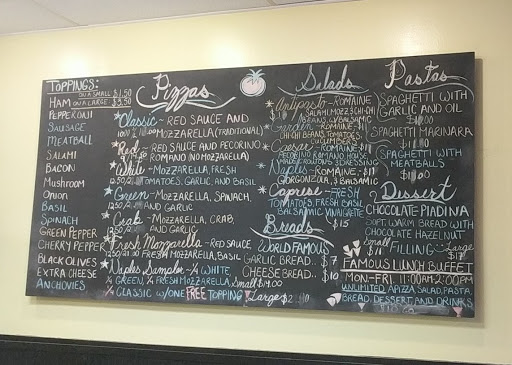 TOPPINGS:
ON A SMALL $1.50
ON A LARGE $3.50
HAM
PEPPERONI
SAUSAGE
MEATBALL
SALAMI
BACON
MUSHROOM
ONION
BASIL
SPINACH
GREEN PEPPER
CHERRY PEPPER
BLACK OLIVES
EXTRA CHEESE
ANCHOVIES
Pizzas
Classic ~ RED SAUCE AND
MOZZARELLA (TRADITIONAL)
Red ~ RED SAUCE AND PECORINO
ROMANO (NO MOZZARELLA)
White - MOZZARELLA, FRESH
TOMATOES, GARLIC, AND BASIL
Green - MOZZARELLA, SPINACH,
AND GARLIC
Crab - MOZZARELLA, CRAB,
AND GARLIC
Fresh Mozzarella - RED SAUCE,
FRESH MOZZARELLA, BASIL
Naples Sampler - 1/4 WHITE
1/4 GREEN, 1/4 FRESH MOZZARELLA Small $19.00
1/4 CLASSIC w/ONE FREE TOPPING Large
Salads
Antipasto - ROMAINE
SALAMI, MOZZ,
BEANS,
Garden - ROMAINE,
BEANS, TOMATOES,
CUCUMBERS
Caesar - ROMAINE
PECORINO ROMANO HOUSE
MADE CROUTONS DRESSING
Naples - ROMAINE,
GORGONZOLA, BALSAMIC
Caprese - FRESH
TOMATOES, FRESH BASIL
BALSAMIC VINAIGRETTE
$15
Breads
WORLD FAMOUS
GARLIC BREAD.. $7
CHEESE BREAD.. $10
Pastas
SPAGHETTI WITH
GARLIC AND OIL
SPAGHETTI MARINARA
SPAGHETTI WITH
MEATBALLS
Dessert
CHOCOLATE PIADINA
SOFT WARM BREAD WITH
CHOCOLATE HAZELNUT
Small FILLING Large
FAMOUS LUNCH BUFFET
MON-FRI 11:00AM-2:00PM
UNLIMITED APIZZA, SALAD, PASTA,
BREAD, DESSERT, AND DRINKS